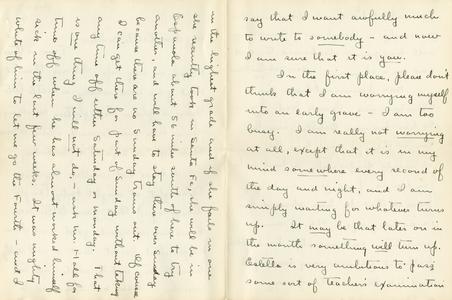 say that I want awfully much
to write to somebody - and now
I am sure that it is you.
In the first place, please don't
think that I am worrying myself
into an early grave - I am too
busy. I am really not worrying
at all, except that it is in my
mind somewhere every record of
the day and night, and I am
simply waiting for whatever turns
up. It may be that later on in
the month something will turn up.
Estella is very ambitious to pass
some sort of teachers examination
in the highest grade and if she fails in one
she recently took in Santa Fe, she will be in
Espanola about 56 miles south of here to try
another, and will have to stay there over Sunday
because there are no Sunday trains out. Of course
I can get there for part of Sunday without taking
any time off either Saturday or Monday. That
is one thing I will not do, - ask Mr. Hall for
time off when he has almost worked himself
sick in the last few weeks. It was mighty
white of him to let me go the Fourth - and I